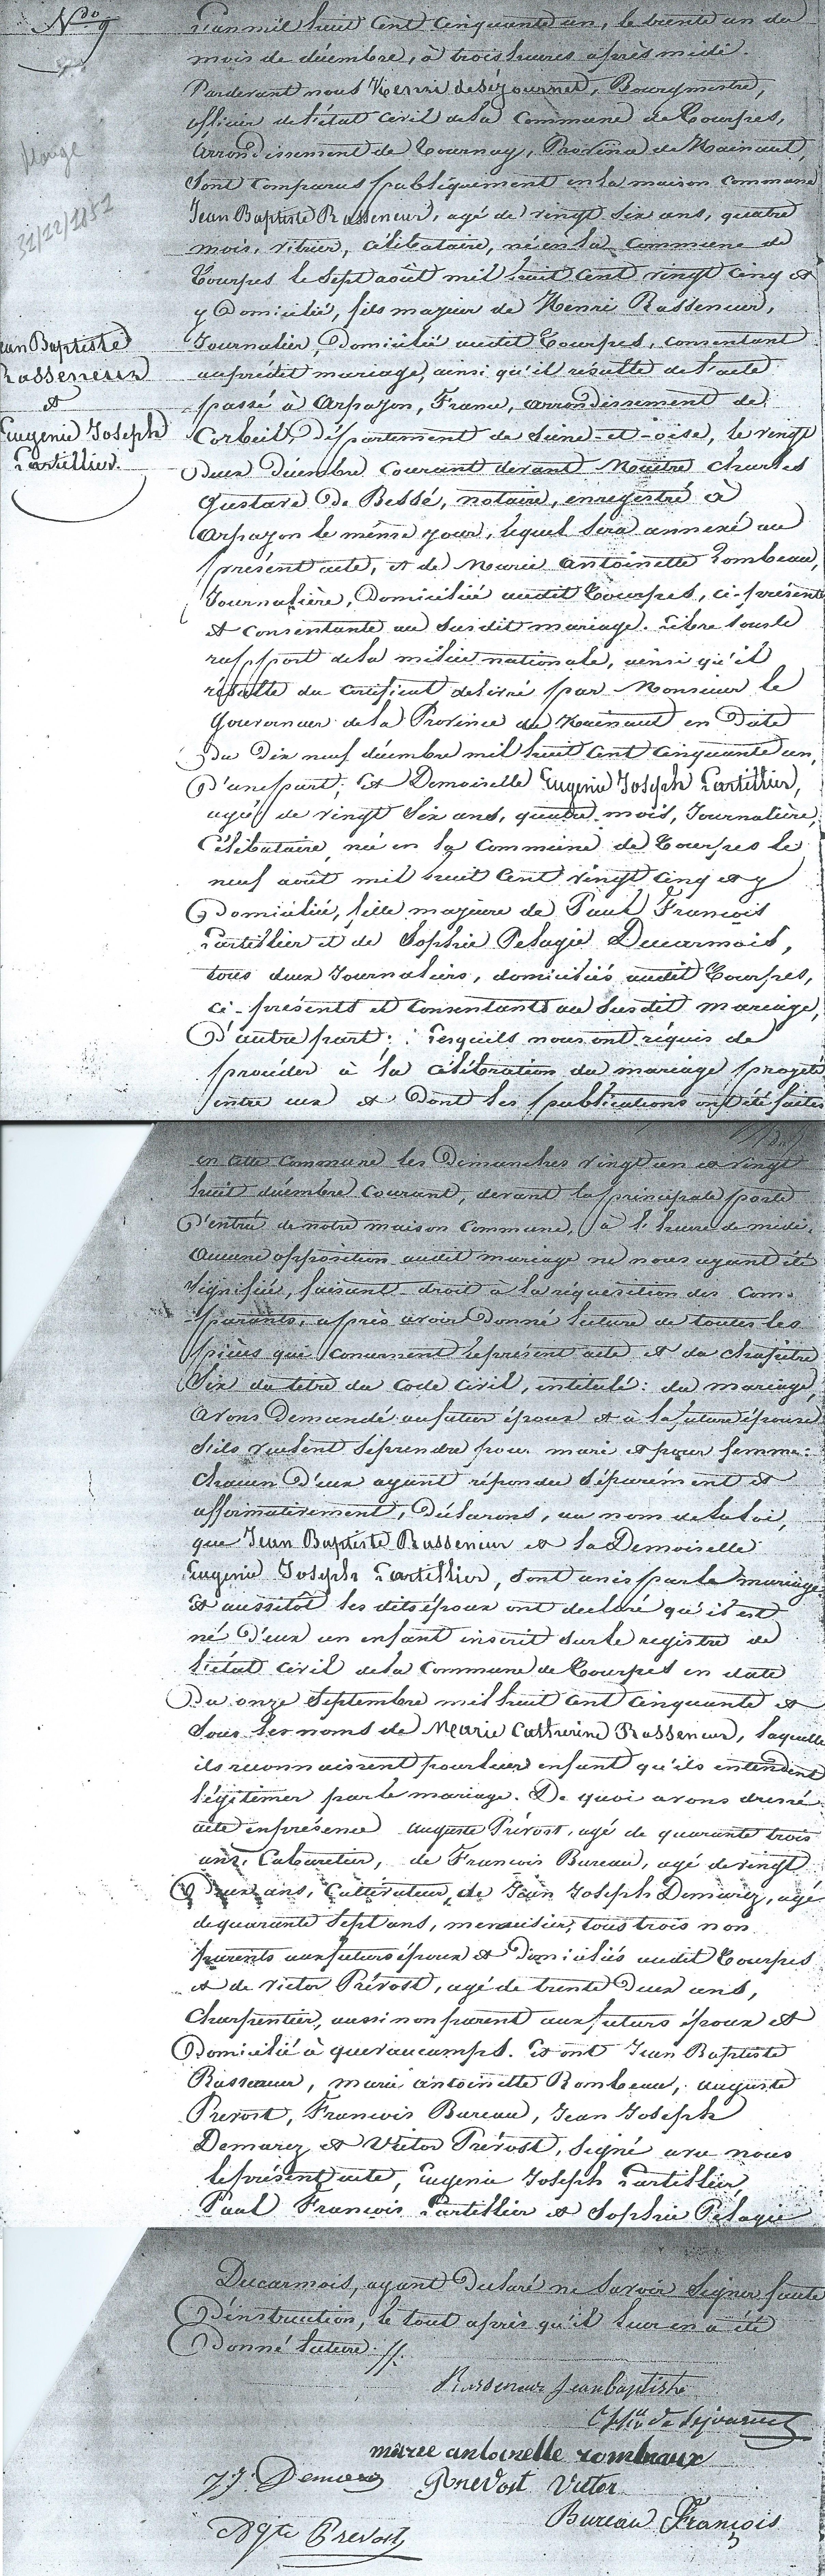 N.do 9
L'an mil huit Cent Cinquante un, le trente un du
mois de décembre, à trois heures après midi.
Pardevant nous Henri deséjournet, Bourgmestre,
officier de l'état Civil de la Commune de Tourpes,
Arrondissement de Tournay, Province de Hainaut,
Sont Comparus publiquement en la maison Commune
Jean Baptiste Rasseneur, agé de vingt Six ans, quatre
mois, vitrier, Célibataire, né en la Commune de
Tourpes le Sept août mil huit Cent vingt Cinq et
y Domicilié, fils majeur de Henri Rasseneur,
Journalier, Domicilié audit Tourpes, consentant
au prédit mariage, ainsi qu'il résulte de l'acte
passé à Arpajon, France, arrondissement de
Corbeil, Département de Seine-et-oise, le vingt
Deux Décembre Courant devant Maître Charles
Gustave De Bessé, notaire, enregistré à
Arpajon le même jour, lequel Sera annexé au
présent acte, et de Marie Antoinette Rombeau,
Journalière, Domiciliée audit Tourpes, ci-présente
et Consentante au Susdit mariage. Libre sous le
rapport de la milice nationale, ainsi qu'il
résulte du certificat délivré par Monsieur le
Gouverneur de la Province de Hainaut en Date
Du Dix neuf décembre mil huit Cent Cinquante un,
D'une part; Et Demoiselle Eugenie Joseph Partillier,
agée de vingt Six ans, quatre mois, Journalière,
Célibataire, née en la Commune de Tourpes le
neuf août mil huit Cent vingt Cinq et y
Domiciliée, fille majeure de Paul François
Partillier et de Sophie Pelagie Ducarmois,
tous deux Journaliers, domiciliés audit Tourpes,
ci-présents et Consentants au Susdit mariage,
D'autre part; Lesquels nous ont réquis de
procéder à la célébration du mariage projeté
entre eux et Dont les publications ont été faites
Mariage
31/12/1851
Jean Baptiste
Rasseneur
et
Eugenie Joseph
Partillier.
en cette Commune les Dimanches vingt un et vingt
huit décembre Courant, devant la principale porte
D'entrée de notre maison Commune, à l'heure de midi.
Aucune opposition audit mariage ne nous ayant été
Signifiée, faisant droit à la réquisition des Com-
parants, après avoir Donné lecture de toutes les
pièces qui Concernent le présent acte et du chapître
Six du titre du Code Civil, intitulé: du mariage,
Avons Demandé au futur époux et à la future épouse
S'ils veulent se prendre pour mari et pour femme:
Chacun D'eux ayant répondu Séparément et
affirmativement, Déclarons, au nom de la loi,
que Jean Baptiste Rasseneur et la Demoiselle
Eugenie Joseph Partillier, sont unis par le mariage.
Et aussitôt les dits époux ont declaré qu'il est
né D'eux un enfant inscrit sur le registre de
l'état Civil de la Commune de Tourpes en date
Du onze Septembre mil huit Cent Cinquante et
Sous les noms de Marie Catherine Rasseneur, laquelle
ils reconnaissent pour leur enfant qu'ils entendent
légitimer par le mariage. De quoi avons dressé
acte en présence Auguste Prévost, agé de quarante trois
ans, Cabaretier, de François Bureau, agé de vingt
Deux ans, Cultivateur, de Jean Joseph Demarez, agé
de quarante Sept ans, menuisier, tous trois non
parents aux futurs époux et Domiciliés audit Tourpes
et de Victor Prévost, agé de trente Deux ans,
Charpentier, aussi non parent aux futurs époux et
Domicilié à quevaucamps. Et ont Jean Baptiste
Rasseneur, marie antoinette Rombeau, auguste
Prevost, François Bureau, Jean Joseph
Demarez et Victor Prévost, signé avec nous
le présent acte, Eugenie Joseph Partillier,
Paul François Partillier et Sophie Pélagie
Ducarmois, ayant Declaré ne Savoir Signer faute
D'instruction, le tout après qu'il leur en a été
Donné lecture.
Rasseneur Jean baptiste
de Sejournet
marie antoinelle rombeaux
J J. Demarez Prevost Victor
Agte Prevost Bureau François